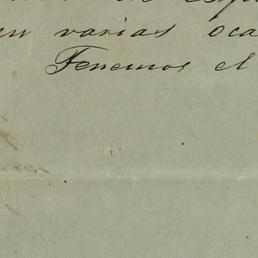 en varias oca
Tenemos el